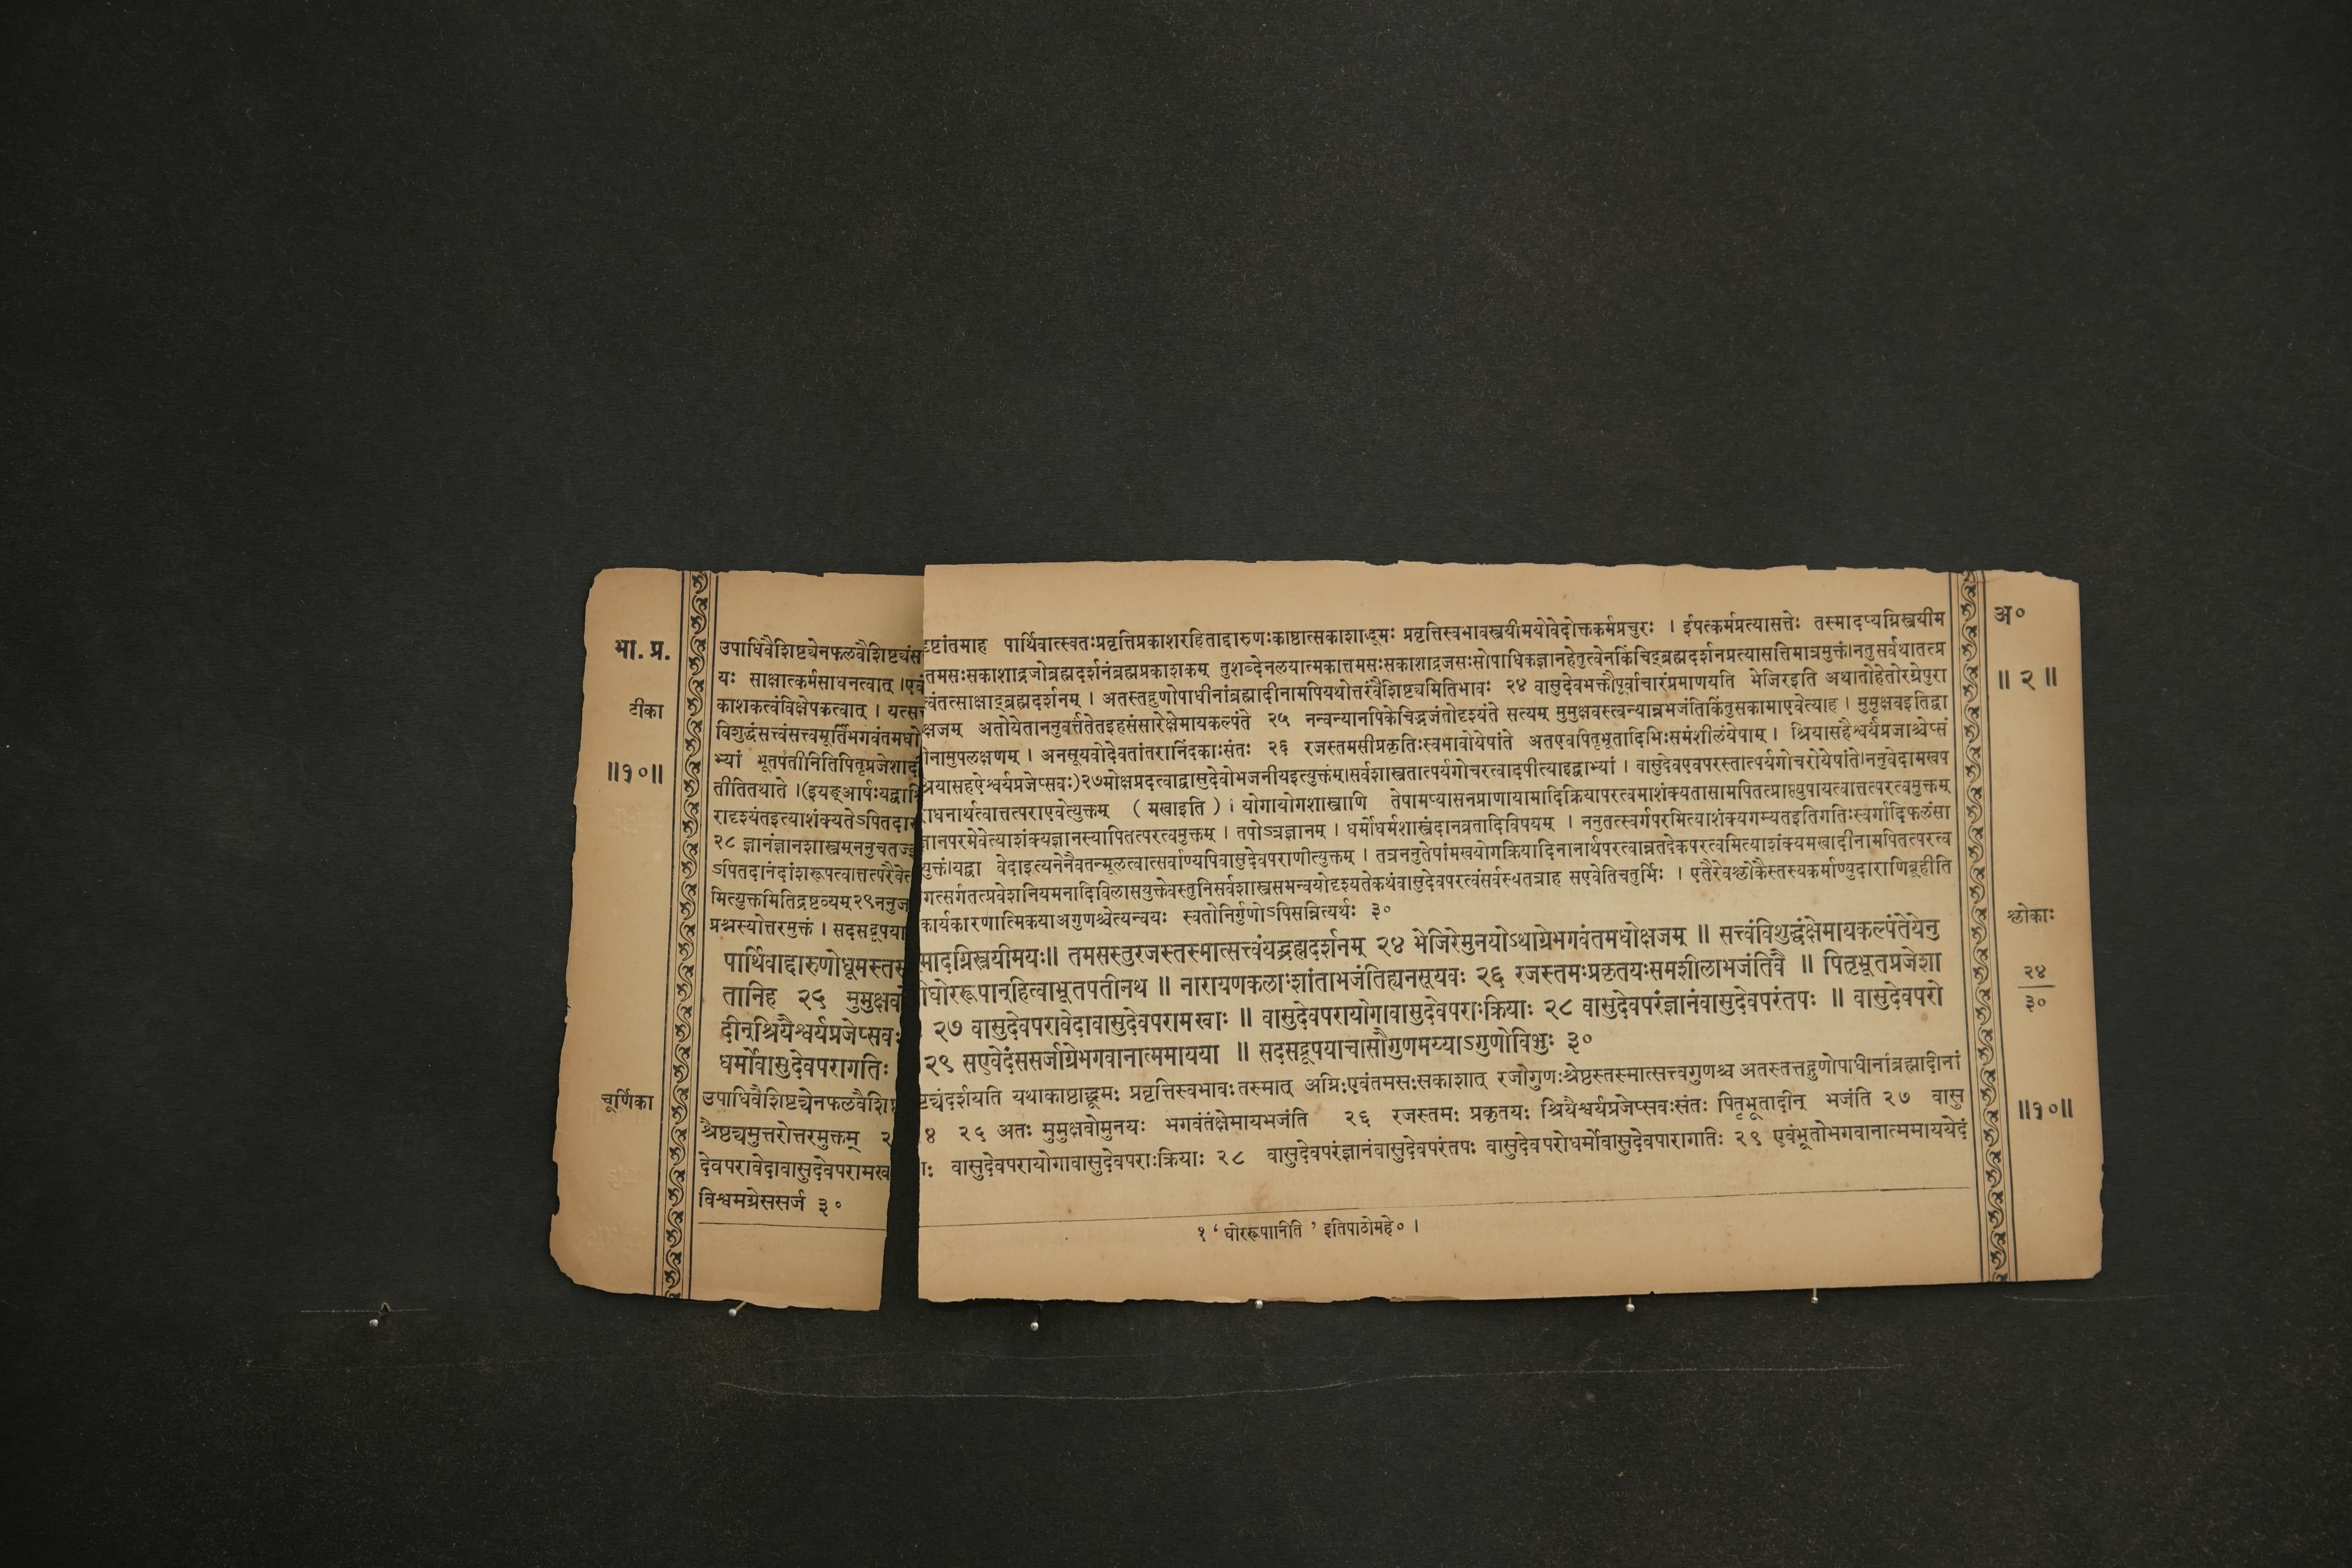 भा. प्र.
टीका
॥१०॥
चूर्णिका
अ०
॥ २ ॥
श्लोकाः
२४
३०
॥१०॥
उपाधिवैशिष्ट्येनफलवैशिष्ट्यंस दृष्टांतमाह पार्थिवात्स्वतःप्रवृत्तिप्रकाशरहिताद्दारुणःकाष्ठात्सकाशाद्धूमः प्रवृत्तिस्वभावस्त्रयीमयोवेदोक्तकर्मप्रचुरः । ईषत्कर्मप्रत्यासत्तेः तस्मादप्यग्निस्त्रयीम
यः साक्षात्कर्मसाधनत्वात् ।एवं तमसःसकाशाद्रजोब्रह्मदर्शनंब्रह्मप्रकाशकम् तुशब्देनलयात्मकात्तमसःसकाशाद्रजसःसोपाधिकज्ञानहेतुत्वेनकिंचिद्ब्रह्मदर्शनप्रत्यासत्तिमात्रमुक्तं।नतुसर्वथातत्प्र
काशकत्वंविक्षेपकत्वात् । यत्सत्त्वंतत्साक्षाद्ब्रह्मदर्शनम् । अतस्तद्गुणोपाधीनांब्रह्मादीनामपियथोत्तरंवैशिष्ट्यमितिभावः २४ वासुदेवभक्तौपूर्वाचारंप्रमाणयति भेजिरइति अथातोहेतोरग्रेपुरा
विशुद्धंसत्त्वंसत्त्वमूर्तिंभगवंतमधोक्षजम् अतोयेताननुवर्त्ततेतइहसंसारेक्षेमायकल्पंते २५ नन्वन्यानपिकेचिद्भजंतोदृश्यंते सत्यम् मुमुक्षवस्त्वन्यान्नभजंतिकिंतुसकामाएवेत्याह । मुमुक्षवइतिद्वा
भ्यां भूतपतीनितिपितृप्रजेशादीनामुपलक्षणम् । अनसूयवोदेवतांतरानिंदकाःसंतः २६ रजस्तमसीप्रकृतिःस्वभावोयेषांते अतएवपितृभूतादिभिःसमंशीलंयेषाम् । श्रियासहैश्वर्यप्रजाश्चेप्सं
तीतितथाते ।(इयङ्आर्षःयद्वा श्रियासहऐश्वर्यप्रजेप्सवः)२७मोक्षप्रदत्वाद्वासुदेवोभजनीयइत्युक्तंम्।सर्वशास्त्रतात्पर्यगोचरत्वादपीत्याहद्वाभ्यां । वासुदेवएवपरस्तात्पर्यगोचरोयेषांते।ननुवेदामखप
रादृश्यंतइत्याशंक्यतेऽपितदाराधनार्थत्वात्तत्पराएवेत्युक्तम् ( मखाइति ) । योगायोगशास्त्राणि तेषामप्यासनप्राणायामादिक्रियापरत्वमाशंक्यतासामपितत्प्राप्त्युपायत्वात्तत्परत्वमुक्तम्
२८ ज्ञानंज्ञानशास्त्रम्ननुचतज्ज्ञानपरमेवेत्याशंक्यज्ञानस्यापितत्परत्वमुक्तम् । तपोऽत्रज्ञानम् । धर्मोधर्मशास्त्रंदानव्रतादिविषयम् । ननुतत्स्वर्गपरमित्याशंक्यगम्यतइतिगतिःस्वर्गादिफलंसा
ऽपितदानंदांशरूपत्वात्तत्परैवेत्युक्तं।यद्वा वेदाइत्यनेनैवतन्मूलत्वात्सर्वाण्यपिवासुदेवपराणीत्युक्तम् । तत्रननुतेषांमखयोगक्रियादिनानार्थपरत्वान्नतदेकपरत्वमित्याशंक्यमखादीनामपितत्परत्व
मित्युक्तमितिद्रष्टव्यम्२९ननुजगत्सर्गतत्प्रवेशनियमनादिविलासयुक्तेवस्तुनिसर्वशास्त्रसमन्वयोदृश्यतेकथंवासुदेवपरत्वंसर्वस्यतत्राह सएवेतिचतुर्भिः । एतैरेवश्लोकैस्तस्यकर्माण्युदाराणिब्रूहीति
प्रश्नस्योत्तरमुक्तं । सदसद्रूपया कार्यकारणात्मिकयाअगुणश्चेत्यन्वयः स्वतोनिर्गुणोऽपिसन्नित्यर्थः ३०
पार्थिवाद्दारुणोधूमस्तस्मादग्निस्त्रयीमयः॥ तमसस्तुरजस्तस्मात्सत्त्वंयद्ब्रह्मदर्शनम् २४ भेजिरेमुनयोऽथाग्रेभगवंतमधोक्षजम् ॥ सत्त्वंविशुद्धंक्षेमायकल्पंतेयेनु
तानिह २५ मुमुक्षवोघोररूपान्हित्वाभूतपतीनथ ॥ नारायणकलाःशांताभजंतिह्यनसूयवः २६ रजस्तमःप्रकृतयःसमशीलाभजंतिवै ॥ पितृभूतप्रजेशा
दीन्श्रियैश्वर्यप्रजेप्सवः २७ वासुदेवपरावेदावासुदेवपरामखाः ॥ वासुदेवपरायोगावासुदेवपराःक्रियाः २८ वासुदेवपरंज्ञानंवासुदेवपरंतपः ॥ वासुदेवपरो
धर्मोवासुदेवपरागतिः २९ सएवेदंससर्जाग्रेभगवानात्ममायया ॥ सदसद्रूपयाचासौगुणमय्याऽगुणोविभुः ३०
उपाधिवैशिष्ट्येनफलवैशिष्ट्यंदर्शयति यथाकाष्ठाद्धूमः प्रवृत्तिस्वभावःतस्मात् अग्निःएवंतमसःसकाशात् रजोगुणःश्रेष्ठस्तस्मात्सत्त्वगुणश्च अतस्तत्तद्गुणोपाधीनांब्रह्मादीनां
श्रैष्ठ्यमुत्तरोत्तरमुक्तम् २४ २५ अतः मुमुक्षवोमुनयः भगवंतंक्षेमायभजंति २६ रजस्तमः प्रकृतयः श्रियैश्वर्यप्रजेप्सवःसंतः पितृभूतादीन् भजंति २७ वासु
देवपरावेदावासुदेवपरामखाः वासुदेवपरायोगावासुदेवपराःक्रियाः २८ वासुदेवपरंज्ञानंवासुदेवपरंतपः वासुदेवपरोधर्मोवासुदेवपारागतिः २९ एवंभूतोभगवानात्ममाययेदं
विश्वमग्रेससर्ज ३०
१ ‘ घोररूपानिति ’ इतिपाठोमहे० ।